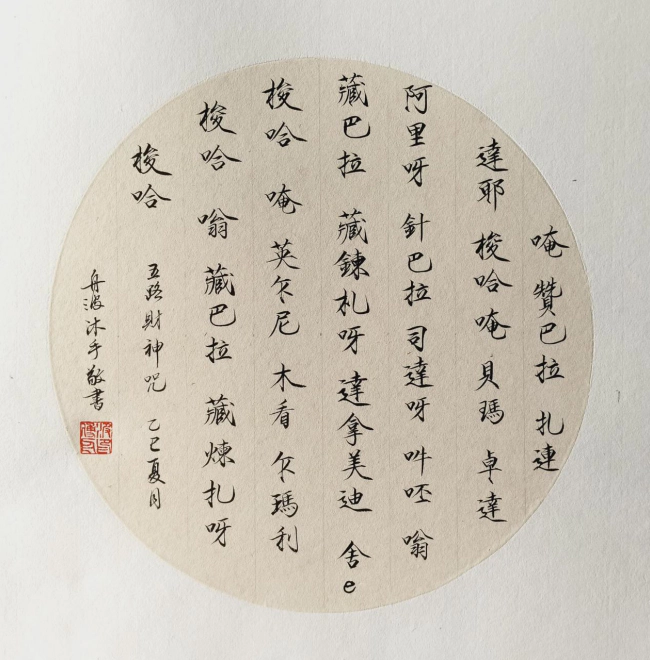 唵 贊巴拉 扎連
達耶 梭哈唵 貝瑪 卓達
阿里呀 針巴拉 司達呀 吽呸 嗡
藏巴拉 藏鍊札呀 達拿美迪 舍e
梭哈 唵 英乍尼 木看 乍瑪利
梭哈 嗡 藏巴拉 藏煉扎呀
梭哈
五路財神咒 乙巳夏月
丹波沐手敬書